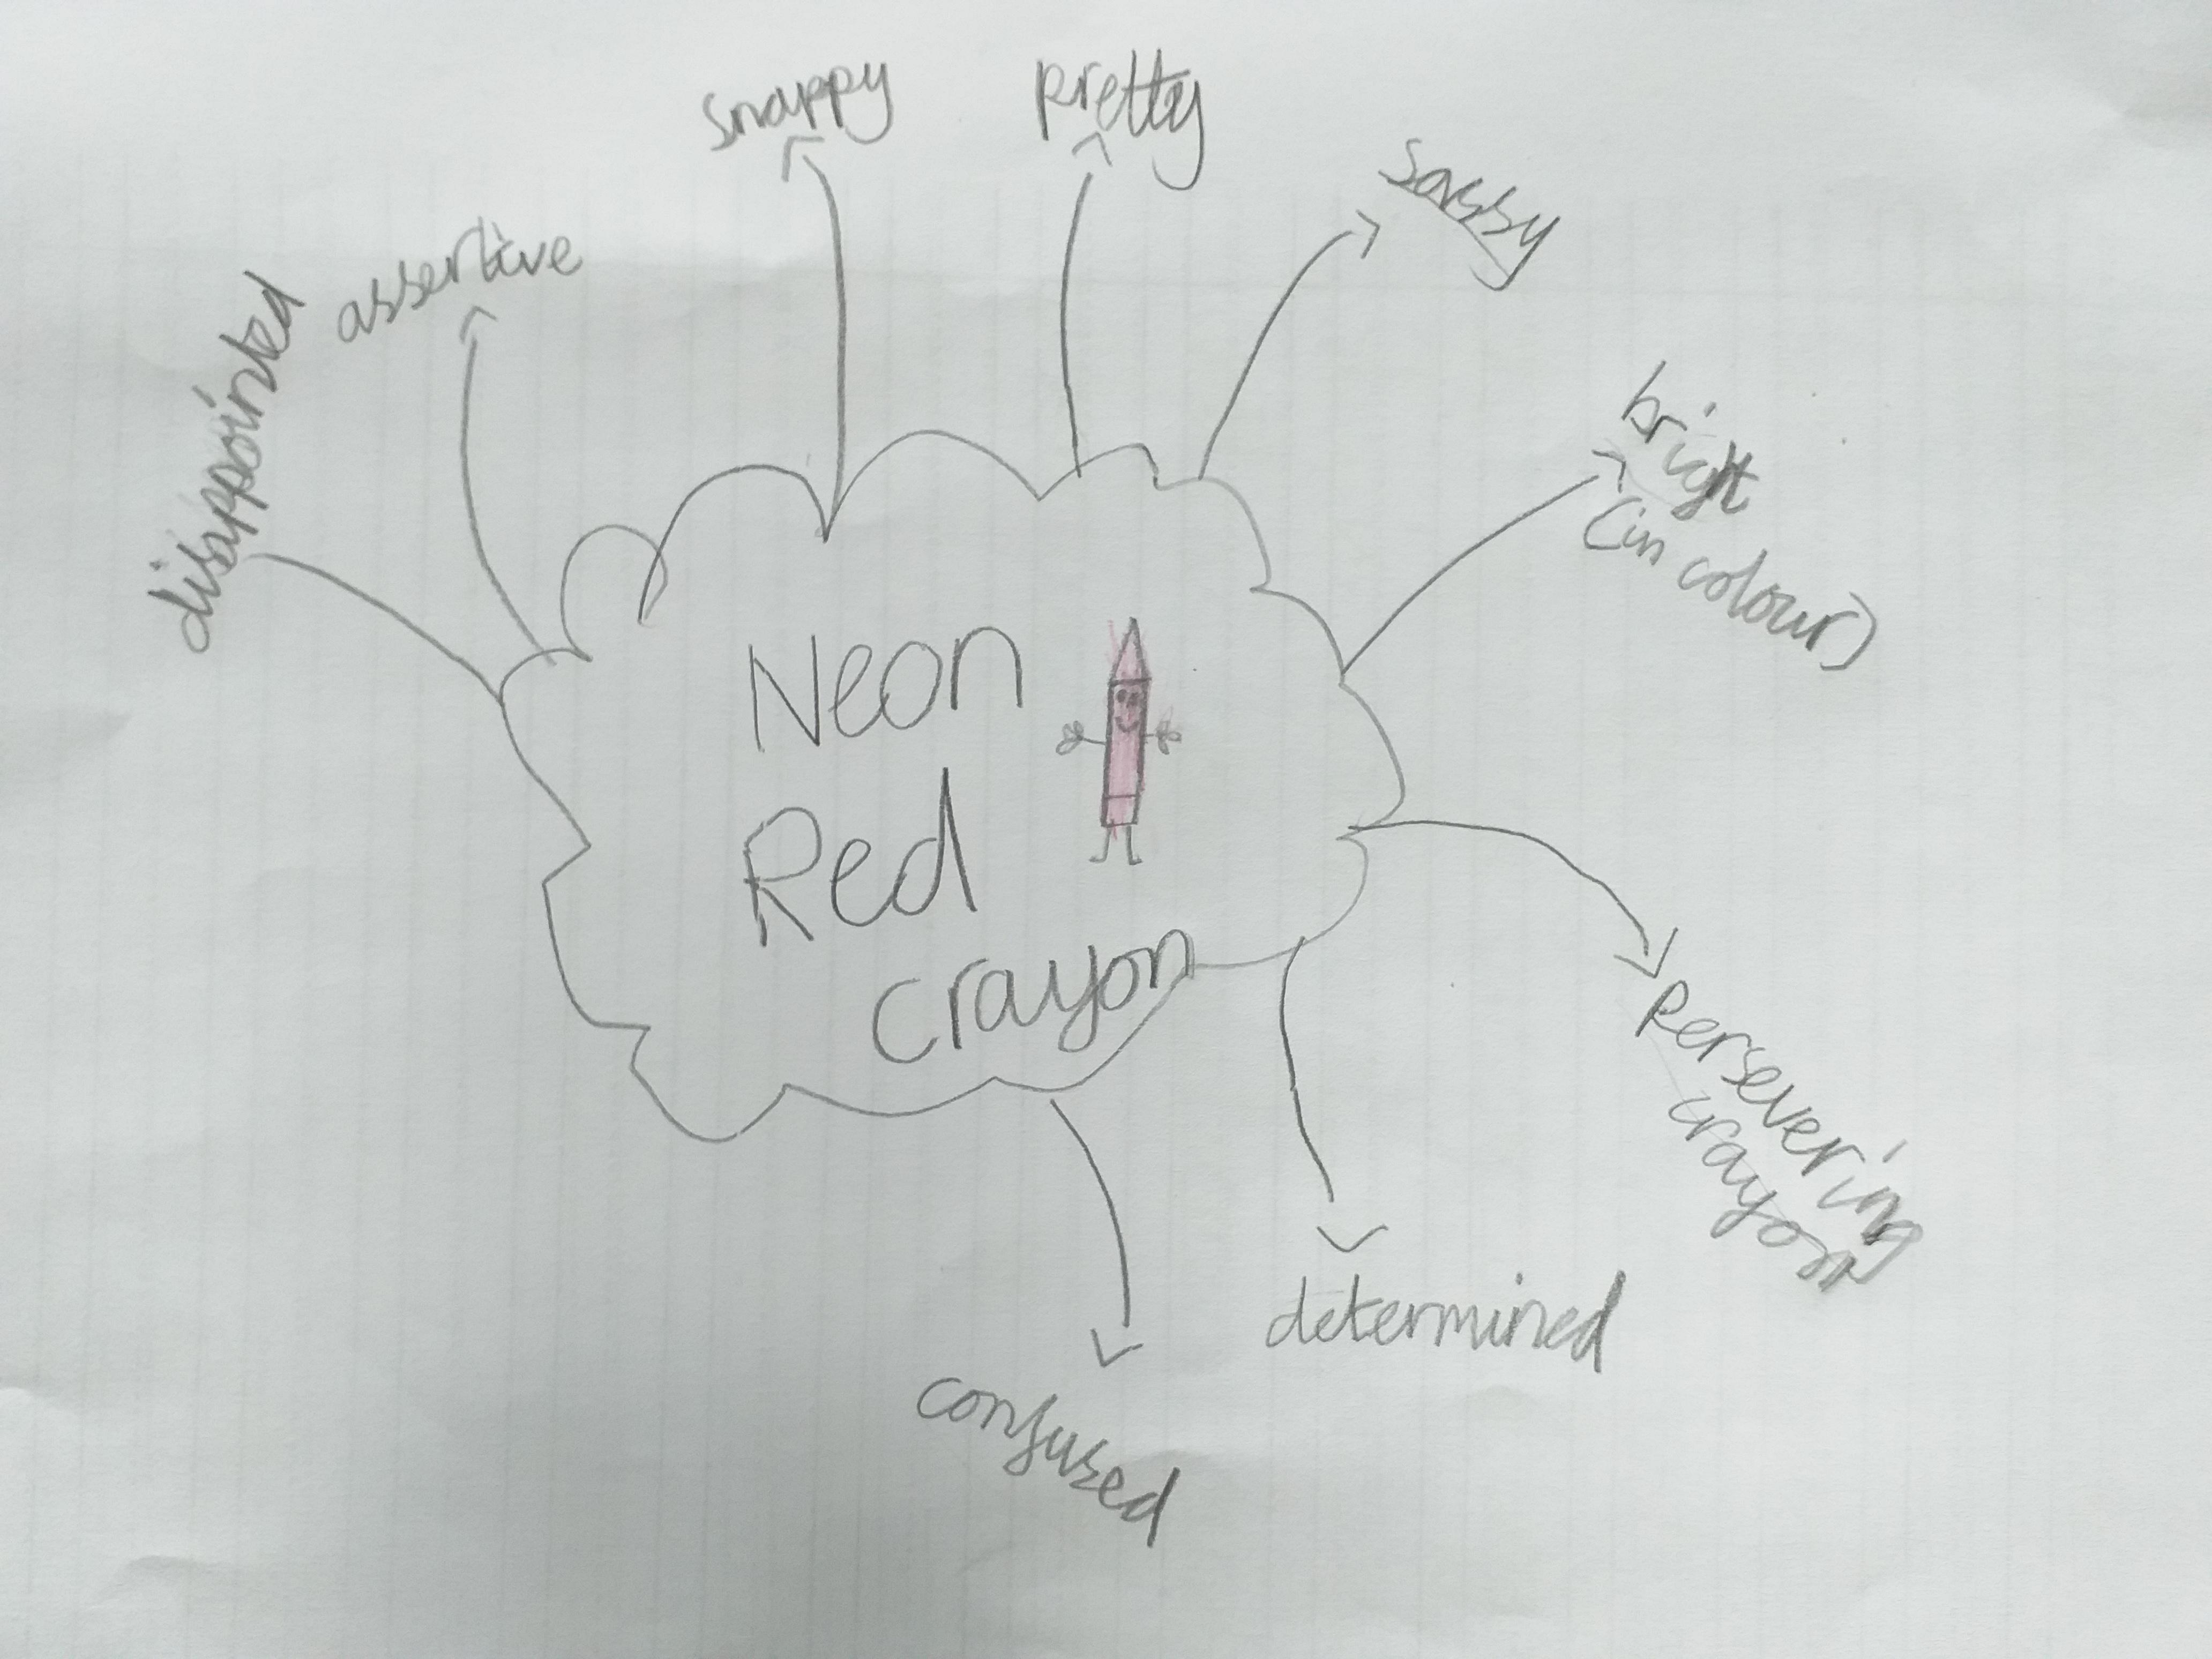 snappy
pretty
sassy
assertive
disappointed
bright
(in colour)
Neon
Red
crayon
persevering
crayon
determined
confused